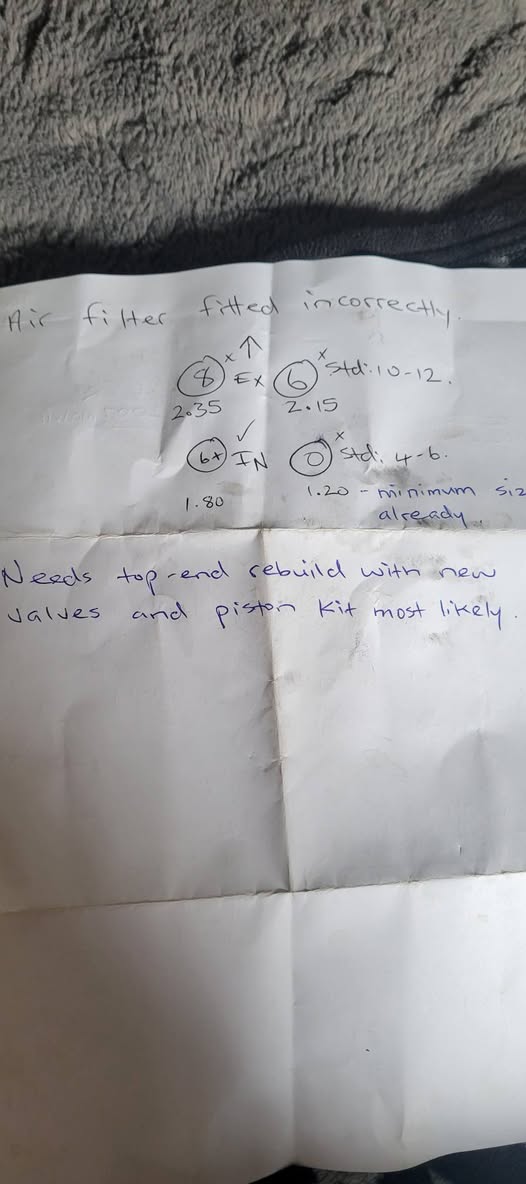 Air filter fitted incorrectly.
8 x ↑ EX 6 x Std: 10-12.
2.35 2.15
6+ ✓ IN 0 x Std: 4-6.
1.80 1.20 - minimum siz
already
Needs top-end rebuild with new
valves and piston kit most likely.